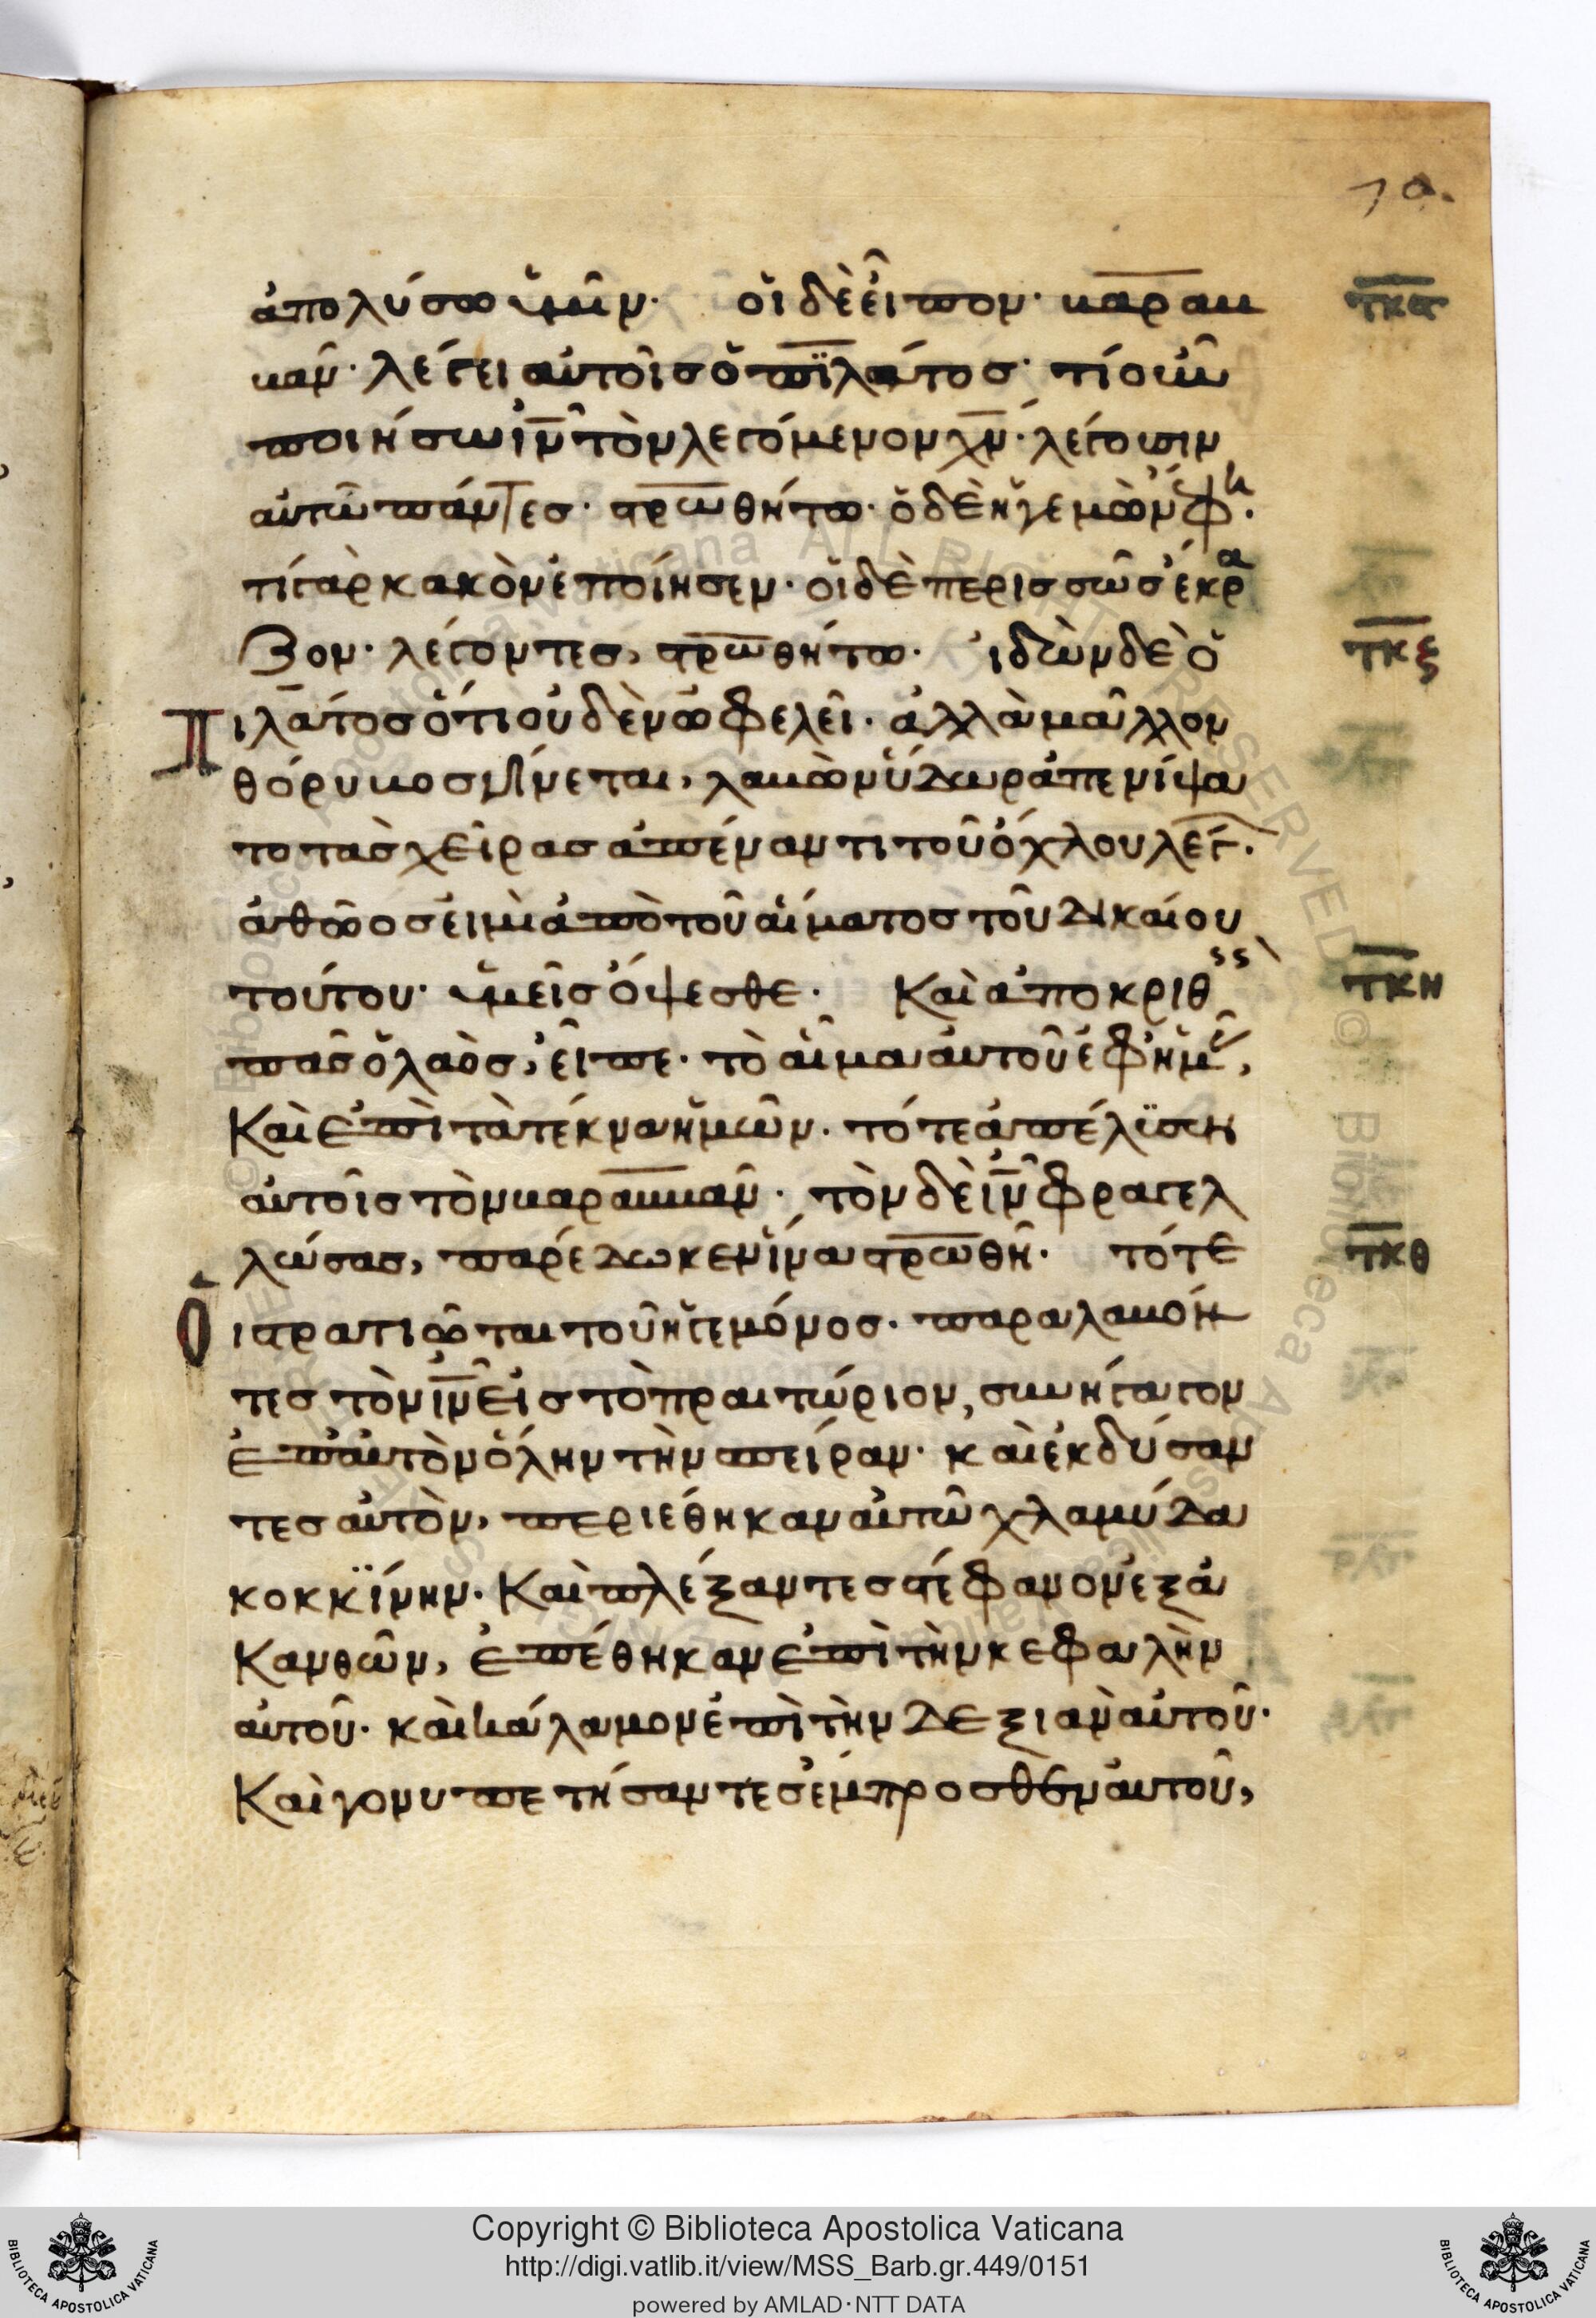 70.
ἀπολύσω ὑμῖν· οἱ δὲ εἶπον· βαραβ
βαν· λέγει αὐτοῖς ὁ πϊλάτος· τί οὖν
ποιήσω ιν τὸν λεγόμενον χν· λέγουσιν
αὐτῶ πάντες· στρωθήτω· ὁ δὲ ἡγεμὼν ἔφη·
τί γὰρ κακὸν ἐποίησεν· οἱ δὲ περισσῶς ἔκρα
ζον· λέγοντες, στρωθήτω· ἰδὼν δὲ ὁ
Πιλάτος ὅτι οὐδὲν ὠφελεῖ· ἀλλὰ μᾶλλον
θόρυβος γίνεται, λαβὼν ὕδωρ ἀπενίψα
το τὰς χεῖρας ἀπέναντι τοῦ ὄχλου λέγ·
ἀθῶος εἰμὶ ἀπὸ τοῦ αἵματος τοῦ δικαίου
τούτου· ὑμεῖς ὄψεσθε· Καὶ ἀποκριθ
πᾶς ὁ λαὸς, εἶπε· τὸ αἷμα αὐτοῦ ἐφ ἡμ,
Καὶ ἐπὶ τὰ τέκνα ἡμῶν· τότε ἀπέλϋσεν
αὐτοῖς τὸν βαραββαν· τὸν δὲ ιν φραγελ
λώσας, παρέδωκεν ἵνα στρωθῆ· τότε
Οἱ στρατιῶται τοῦ ἡγεμόνος· παραλαβόν
τες τὸν ιν εἰς τὸ πραιτώριον, συνήγαγον
ἐπ αὐτὸν ὅλην τὴν σπείραν· καὶ ἐκδύσαν
τες αὐτὸν, περιέθηκαν αὐτῶ χλαμύδα
κοκκϊίνην· Καὶ πλέξαντες στέφανον ἐξ ἀ
Κανθῶν, ἐπέθηκαν ἐπὶ τὴν κεφαλὴν
αὐτοῦ· καὶ κάλαμον ἐπὶ τὴν δεξιὰν αὐτοῦ·
Καὶ γονυπετήσαντες ἔμπροσθεν αὐτοῦ,
τκξ
τκη
τκθ
Copyright © Biblioteca Apostolica Vaticana
http://digi.vatlib.it/view/MSS_Barb.gr.449/0151
powered by AMLAD·NTT DATA
BIBLIOTECA APOSTOLICA VATICANA
BIBLIOTECA APOSTOLICA VATICANA